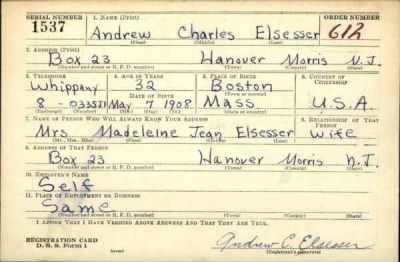 SERIAL NUMBER 1. NAME (Print) ORDER NUMBER
1537 Andrew Charles Elsesser 612
(First) (Middle) (Last)
2. ADDRESS (Print)
Box 23 Hanover Morris N.J.
(Number and street or R. F. D. number) (Town) (County) (State)
3. TELEPHONE 4. AGE IN YEARS 5. PLACE OF BIRTH 6. COUNTRY OF CITIZENSHIP
Whippany 32 Boston
DATE OF BIRTH (Town or county)
8-0335J1 May 7 1908 Mass U.S.A.
(Exchange) (Number) (Mo.) (Day) (Yr.) (State or country)
7. NAME OF PERSON WHO WILL ALWAYS KNOW YOUR ADDRESS 8. RELATIONSHIP OF THAT PERSON
Mrs. Madeleine Jean Elsesser Wife
(Mr., Mrs., Miss) (First) (Middle) (Last)
9. ADDRESS OF THAT PERSON
Box 23 Hanover Morris N.J.
(Number and street or R. F. D. number) (Town) (County) (State)
10. EMPLOYER'S NAME
Self
11. PLACE OF EMPLOYMENT OR BUSINESS
Same
(Number and street or R. F. D. number) (Town) (County) (State)
I AFFIRM THAT I HAVE VERIFIED ABOVE ANSWERS AND THAT THEY ARE TRUE.
REGISTRATION CARD
D. S. S. Form 1 (over) Andrew C. Elsesser
(Registrant's signature)